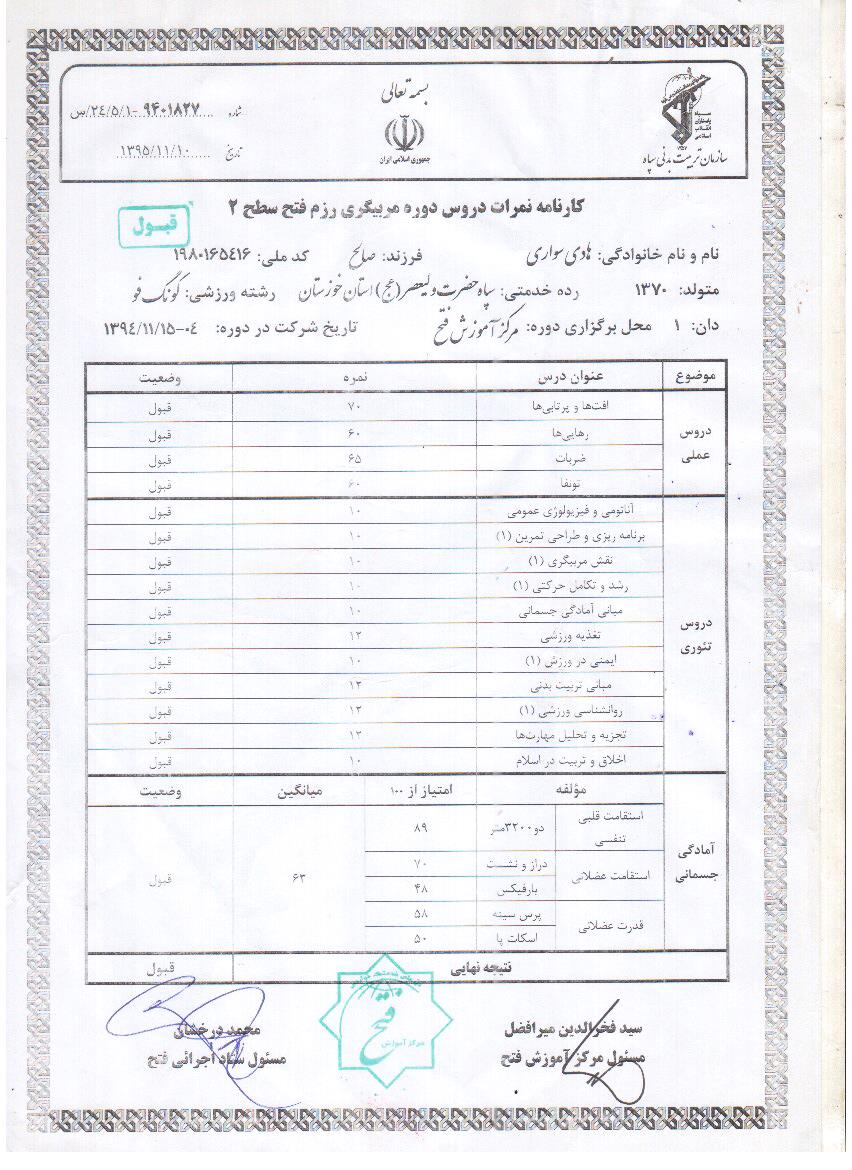 بسمه تعالی
جمهوری اسلامی ایران
سپاه
پاسداران
انقلاب
اسلامی
سازمان تربیت بدنی سپاه
شماره ۹۴۰۱۸۲۷-۲۴/۵/۱/ص
تاریخ ۱۳۹۵/۱۱/۱۰
کارنامه نمرات دروس دوره مربیگری رزم فتح سطح ۲
قبول
نام و نام خانوادگی: هادی سواری فرزند: صالح کد ملی: ۱۹۸۰۱۶۵۴۱۶
متولد: ۱۳۷۰ رده خدمتی: سپاه حضرت ولیعصر (عج) استان خوزستان رشته ورزشی: کونگ فو
دان: ۱ محل برگزاری دوره: مرکز آموزش فتح تاریخ شرکت در دوره: ۰۴-۱۳۹٤/۱۱/۱۵
موضوع عنوان درس نمره وضعیت
دروس عملی
افت‌ها و پرتابی‌ها ۷۰ قبول
رهایی‌ها ۶۰ قبول
ضربات ۶۵ قبول
تونفا ۶۰ قبول
دروس تئوری
آناتومی و فیزیولوژی عمومی ۱۰ قبول
برنامه ریزی و طراحی تمرین (۱) ۱۰ قبول
نقش مربیگری (۱) ۱۰ قبول
رشد و تکامل حرکتی (۱) ۱۰ قبول
مبانی آمادگی جسمانی ۱۰ قبول
تغذیه ورزشی ۱۲ قبول
ایمنی در ورزش (۱) ۱۰ قبول
مبانی تربیت بدنی ۱۲ قبول
روانشناسی ورزشی (۱) ۱۲ قبول
تجزیه و تحلیل مهارت‌ها ۱۲ قبول
اخلاق و تربیت در اسلام ۱۰ قبول
مؤلفه امتیاز از ۱۰۰ میانگین وضعیت
آمادگی جسمانی
استقامت قلبی تنفسی دو ۳۲۰۰متر ۸۹
استقامت عضلانی دراز و نشست ۷۰
بارفیکس ۴۸
۶۳ قبول
قدرت عضلانی پرس سینه ۵۸
اسکات پا ۵۰
نتیجه نهایی قبول
فتح
مرکز آموزش
سید فخرالدین میرافضل
مسئول مرکز آموزش فتح
محمد درخشان
مسئول ستاد اجرائی فتح